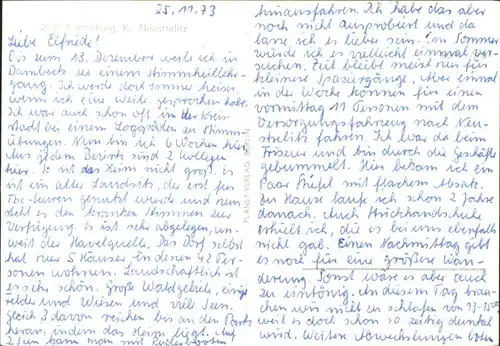 25.11.73
Neustrelitz
Liebe Elfriede!
Bis zum 13. Dezember weile ich in
Dambeck zu einem Stimmheillehr-
gang. Ich werde doch immer heiser,
wenn ich eine Weile gesprochen habe.
Ich war auch schon oft in der Kreis-
stadt bei einem Logopäden zu Stimm-
übungen. Nun bin ich 6 Wochen hier.
Aus jedem Bezirk sind 2 Kollegen
hier. So ist das Heim nicht groß. Es
ist ein alter Landsitz, der erst für
Tbc-kuren genutzt wurde und nun
steht es den kranken Stimmen zur
Verfügung. Es ist sehr abgelegen, un-
weit der Havelquelle. Das Dorf selbst
hat nur 5 Häuser, in denen 42 Per-
sonen wohnen. Landschaftlich ist
es sehr schön. Große Waldgebiete, einige
Felder und Wiesen und viel Seen.
Gleich 3 davon reichen bis an den Park
heran, in dem das Heim liegt. Auf
2 Seen kann man mit Ruderbooten
PLANET-VERLAG BERLIN
hinausfahren. Ich habe das aber
noch nicht ausprobiert und da
lasse ich es lieber sein. Im Sommer
würde ich es vielleicht einmal ver-
suchen. Zeit bleibt meist nur für
kleinere Spaziergänge. Aber einmal
in der Woche können für einen
Vormittag 11 Personen mit dem
Versorgungsfahrzeug nach Neu-
strelitz fahren. Ich war da beim
Friseur und bin durch die Geschäfte
gebummelt. Hier bekam ich ein
Paar Stiefel mit flachem Absatz.
Zu Hause laufe ich schon 2 Jahre
danach. Auch Hirschhandschuhe
erhielt ich, die es bei uns ebenfalls
nicht gab. Einen Nachmittag gibt
es noch für eine größere Wan-
derung. Sonst wäre es aber auch
zu eintönig. An diesem Tag brau-
chen wir nicht zu schlafen von 13-15 00
weil es doch schon so zeitig dunkel
wird. Weitere Abwechslungen boten